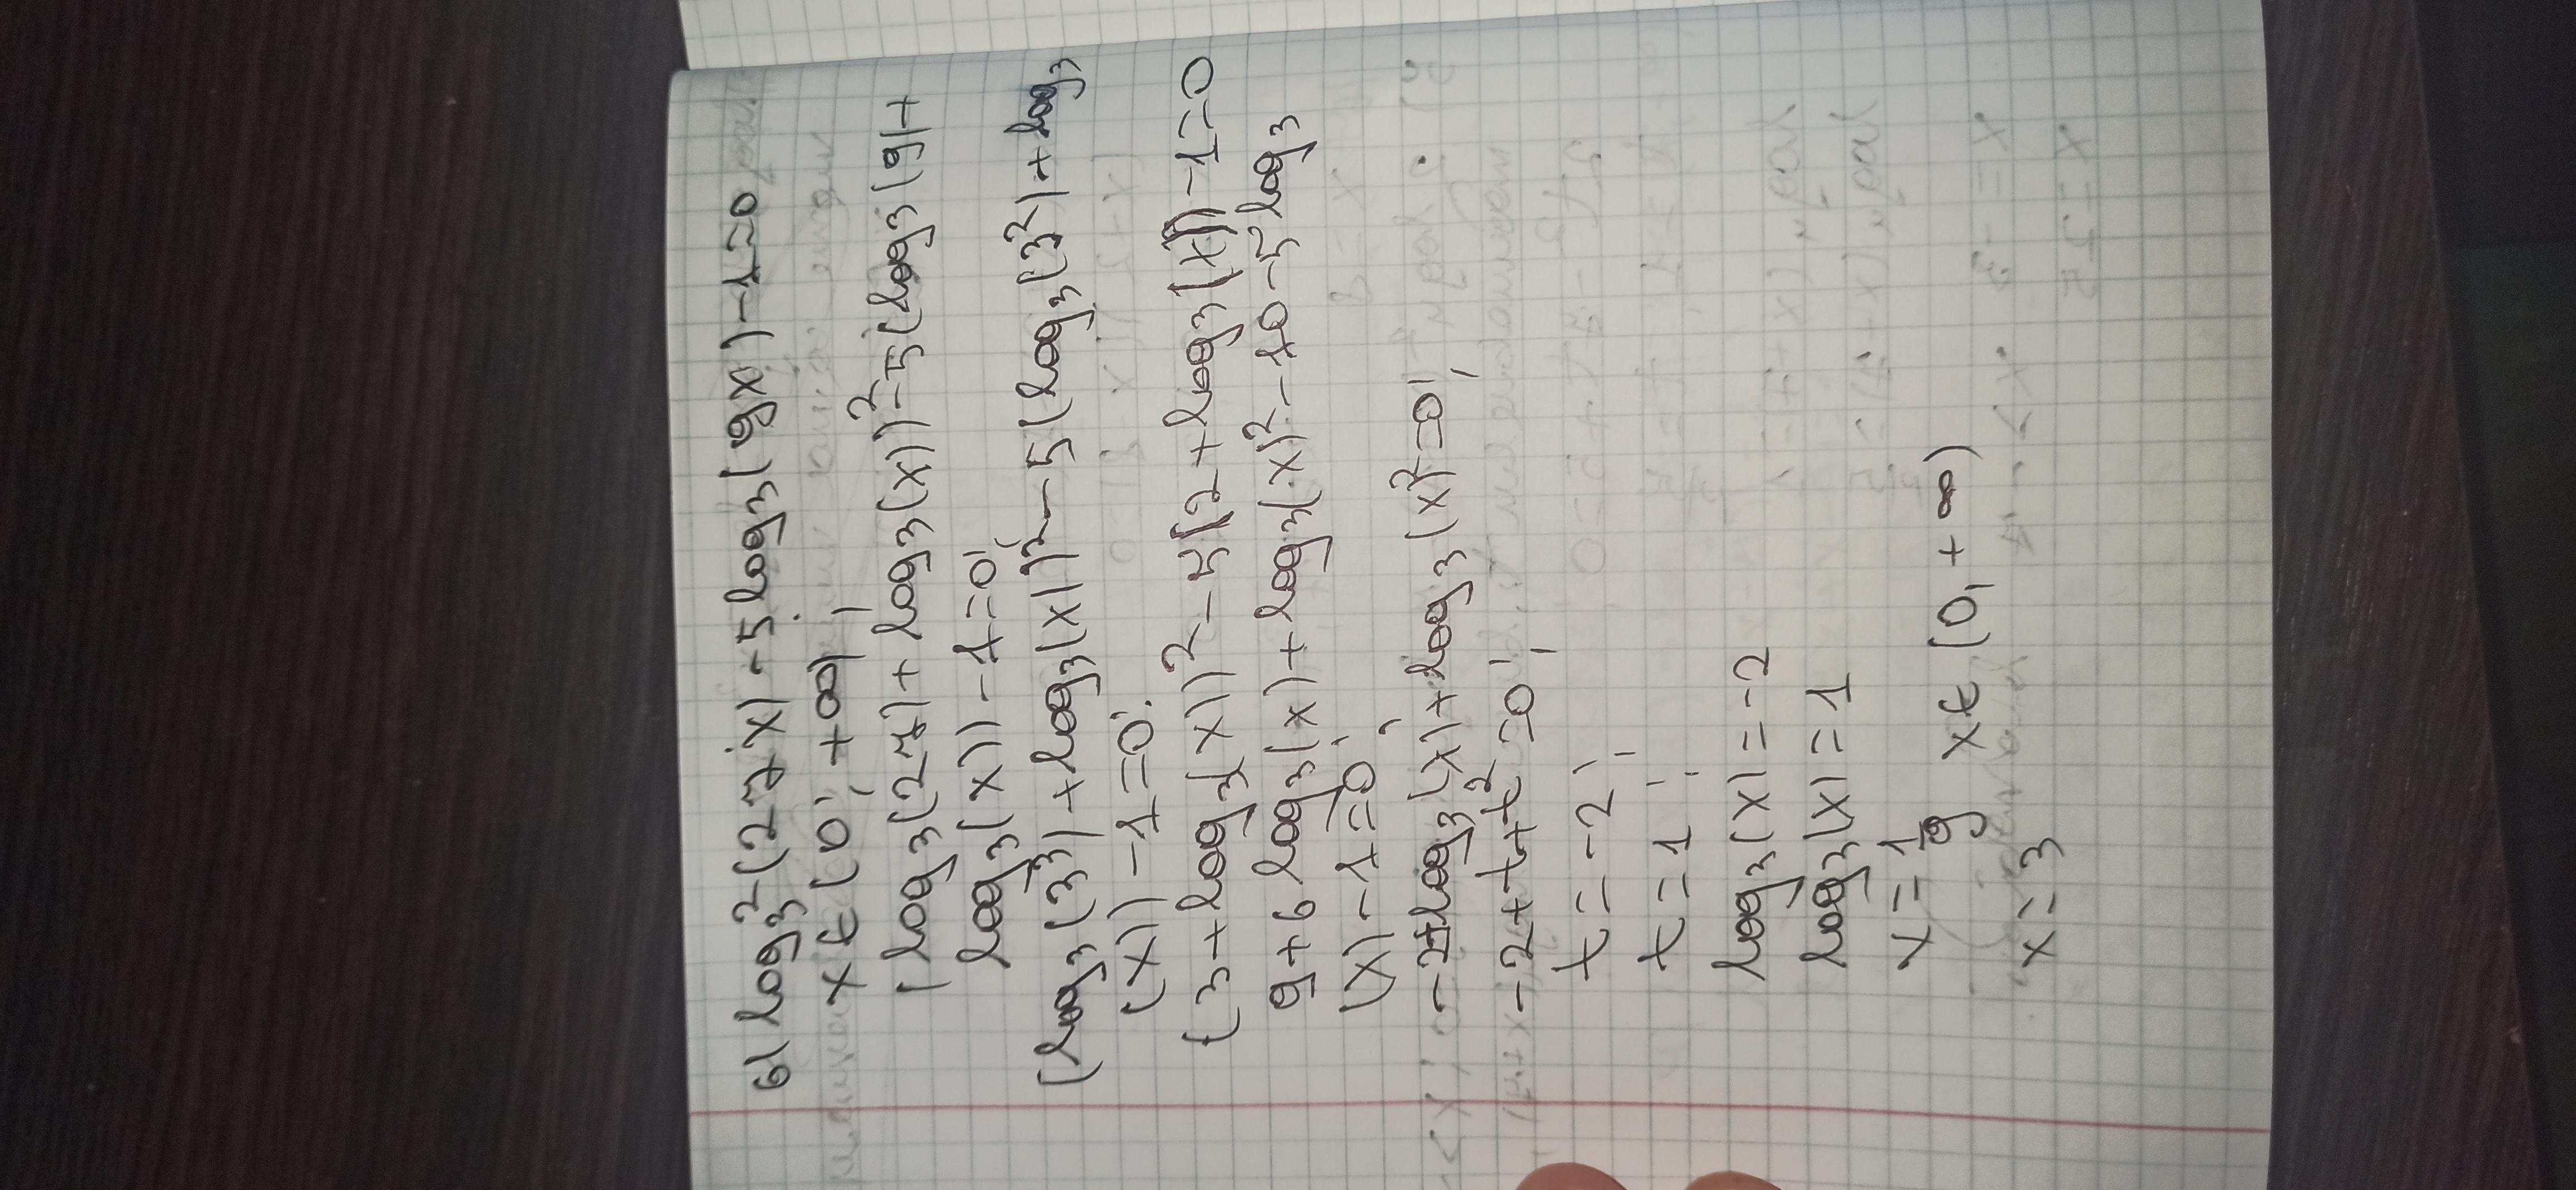 6) log₃²(27x) - 5log₃(9x) - 1 = 0
x ∈ (0; +∞);
(log₃(27) + log₃(x))² - 5(log₃(9) +
log₃(x)) - 1 = 0;
(log₃(3³) + log₃(x))² - 5(log₃(3²) + log₃
(x)) - 1 = 0;
(3 + log₃(x))² - 5(2 + log₃(x)) - 1 = 0
9 + 6 log₃(x) + log₃(x)² - 10 - 5 log₃
(x) - 1 = 0;
-2 + log₃(x) + log₃(x)² = 0;
-2 + t + t² = 0;
t = -2;
t = 1;
log₃(x) = -2
log₃(x) = 1
x = 1/9 x ∈ (0, +∞)
x = 3